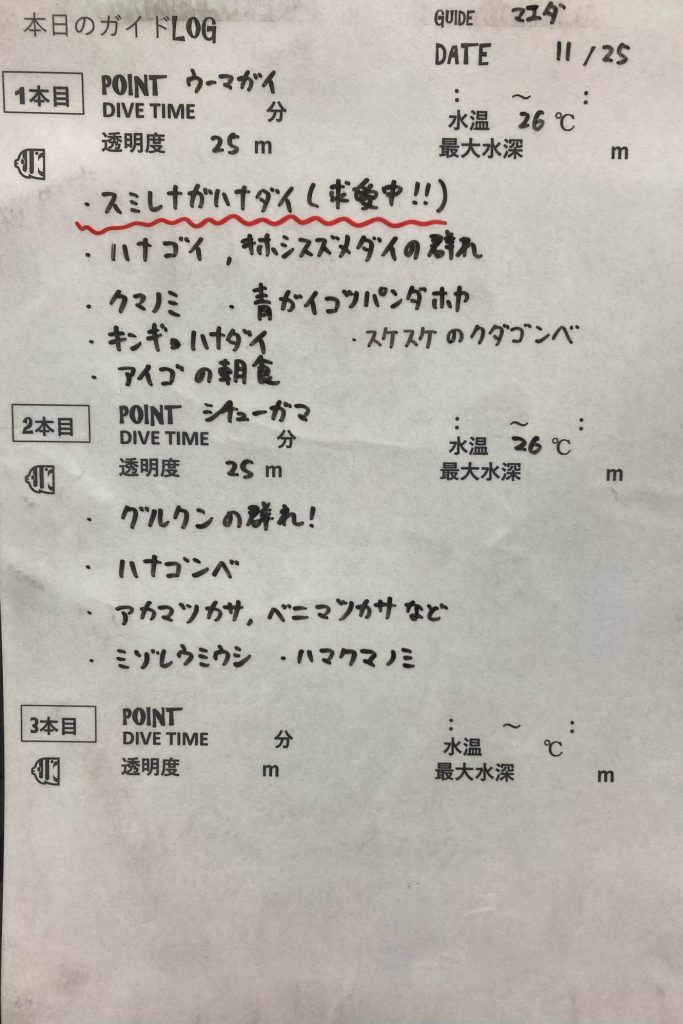 本日のガイドLOG
GUIDE マエダ
DATE 11/25
1本目 POINT ウーマガイ
DIVE TIME 分 : ～ :
透明度 25 m 水温 26 ℃
最大水深 m
・スミレナガハナダイ(求愛中!!)
・ハナゴイ,オホシスズメダイの群れ
・クマノミ ・青ガイコツパンダホヤ
・キンギョハナダイ ・スケスケのクダゴンベ
・アイゴの朝食
2本目 POINT シチューガマ
DIVE TIME 分 : ～ :
透明度 25 m 水温 26 ℃
最大水深 m
・グルクンの群れ!
・ハナゴンベ
・アカマツカサ,ベニマツカサなど
・ミゾレウミウシ ・ハマクマノミ
3本目 POINT
DIVE TIME 分 : ～ :
透明度 m 水温 ℃
最大水深 m